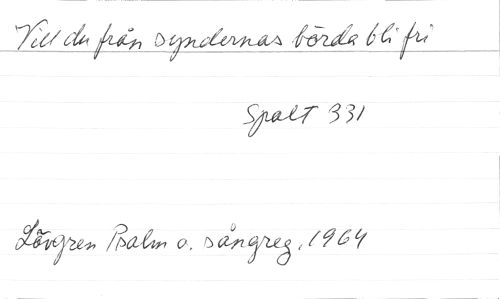 Vill du från syndernas börda bli fri
Spalt 331
Lövgren Psalm o. sångreg. 1964